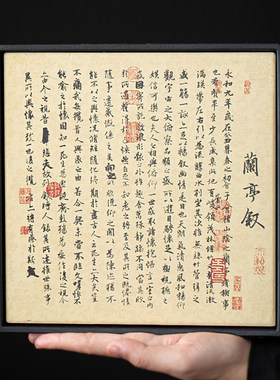 蘭亭叙
永和九年歲在癸丑暮春之初會于會稽山陰之蘭亭脩稧事
也羣賢畢至少長咸集此地有崇山峻領茂林脩竹又有清流激
湍暎帶左右引以為流觴曲水列坐其次雖無絲竹管弦之
盛一觴一詠亦足以暢叙幽情是日也天朗氣清惠風和暢仰
觀宇宙之大俯察品類之盛所以遊目騁懷足以極視聽之
娛信可樂也夫人之相與俯仰一世或取諸懷抱悟言一室之內
或因寄所託放浪形骸之外雖趣舍萬殊靜躁不同當其欣
於所遇蹔得於己快然自足不知老之將至及其所之既惓情
隨事遷感慨係之矣向之所欣俛仰之閒以為陳迹猶不
能不以之興懷況脩短隨化終期於盡古人云死生亦大矣豈
不痛哉每攬昔人興感之由若合一契未嘗不臨文嗟悼不
能喻之於懷固知一死生為虛誕齊彭殤為妄作後之視今
亦由今之視昔悲夫故列叙時人錄其所述雖世殊事
異所以興懷其致一也後之攬者亦將有感於斯文